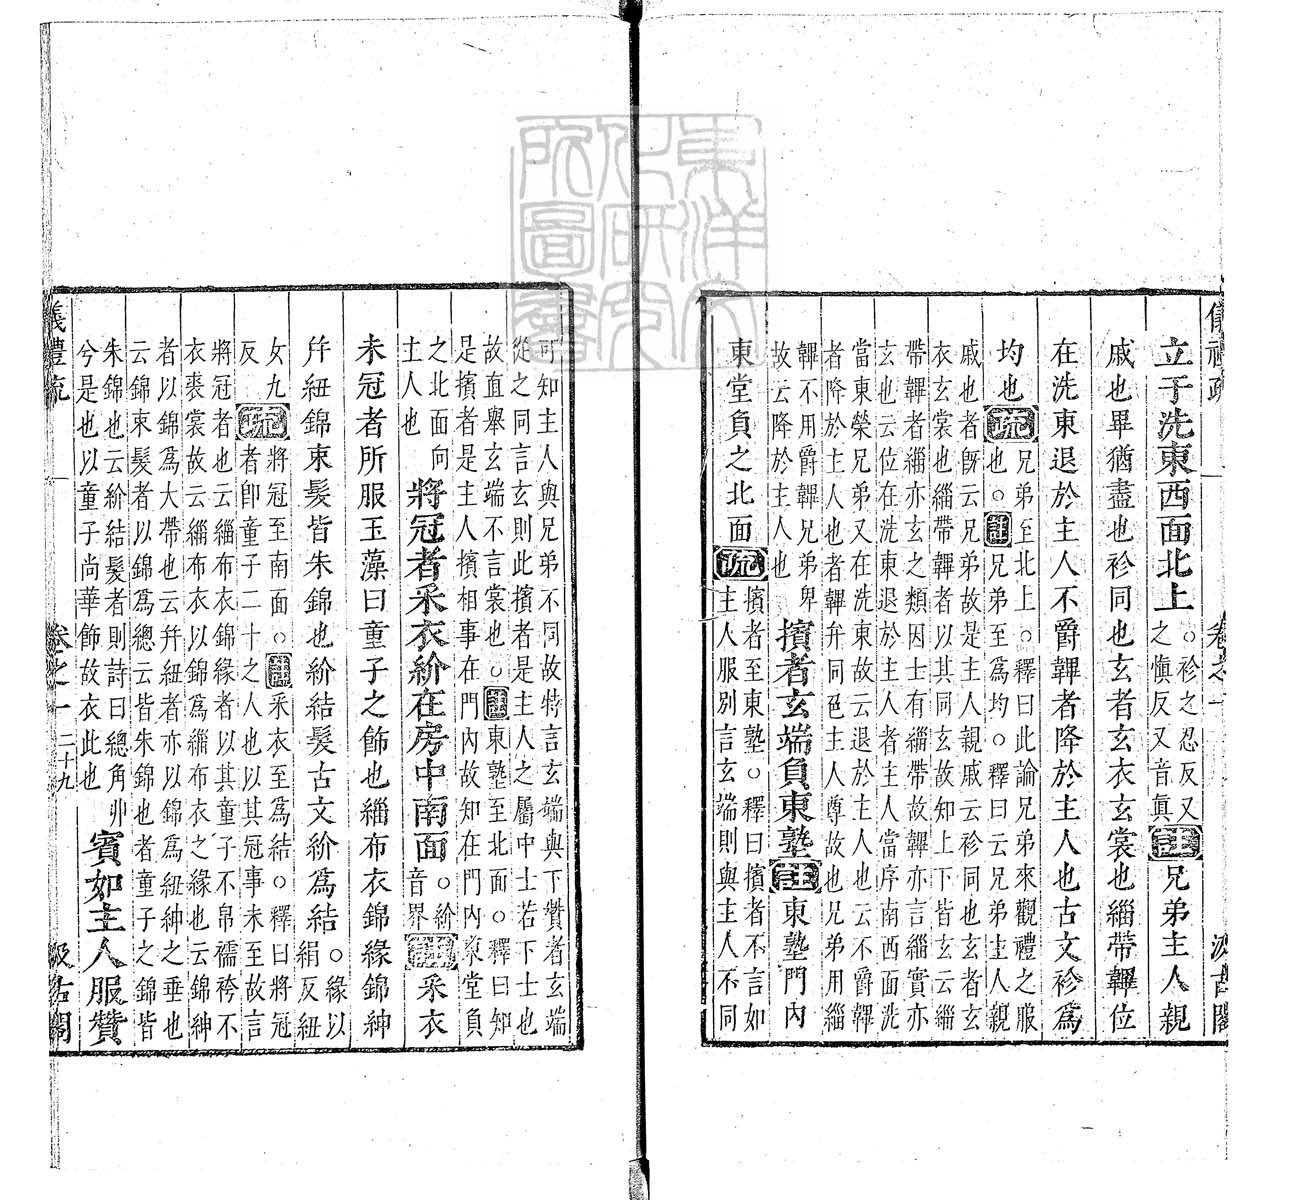 儀禮疏 卷之一 汲古閣
立于洗東西面北上
○袗之忍反又
之愼反又音眞
註兄弟主人親
戚也畢猶盡也袗同也玄者玄衣玄裳也緇帶韠位
在洗東退於主人不爵韠者降於主人也古文袗爲
均也
疏
兄弟至北上○釋曰此論兄弟來觀禮之服
也○註兄弟至爲均○釋曰云兄弟主人親
戚也者旣云兄弟故是主人親戚云袗同也玄者玄
衣玄裳也緇帶韠者以其同玄故知上下皆玄云緇
帶韠者緇亦玄之類因士有緇帶故韠亦言緇實亦
玄也云位在洗東退於主人者主人當序南西面洗
當東榮兄弟又在洗東故云退於主人也云不爵韠
者降於主人也者韠弁同色主人尊故也兄弟用緇
韠不用爵韠兄弟卑
故云降於主人也
擯者玄端負東塾註東塾門內
東堂負之北面疏
擯者至東塾○釋曰擯者不言如
主人服別言玄端則與主人不同
可知主人與兄弟不同故特言玄端與下贊者玄端
從之同言玄則此擯者是主人之屬中士若下士也
故直舉玄端不言裳也○註東塾至北面○釋曰知
是擯者是主人擯相事在門內故知在門內東堂負
之北面向
主人也
將冠者采衣紒在房中南面
○紒
音界
註采衣
未冠者所服玉藻曰童子之飾也緇布衣錦緣錦紳
幷紐錦束髮皆朱錦也紒結髮古文紒爲結
○緣以
絹反紐
女九
反
疏
將冠至南面○註采衣至爲結○釋曰將冠
者卽童子二十之人也以其冠事未至故言
將冠者也云緇布衣錦緣者以其童子不帛襦袴不
衣裘裳故云緇布衣以錦爲緇布衣之緣也云錦紳
者以錦爲大帶也云幷紐者亦以錦爲紐紳之垂也
云錦束髮者以錦爲總云皆朱錦也者童子之錦皆
朱錦也云紒結髮者則詩曰總角丱
兮是也以童子尚華飾故衣此也
賓如主人服贊
儀禮疏 卷之一 二十九 汲古閣
東洋文化研究所圖書